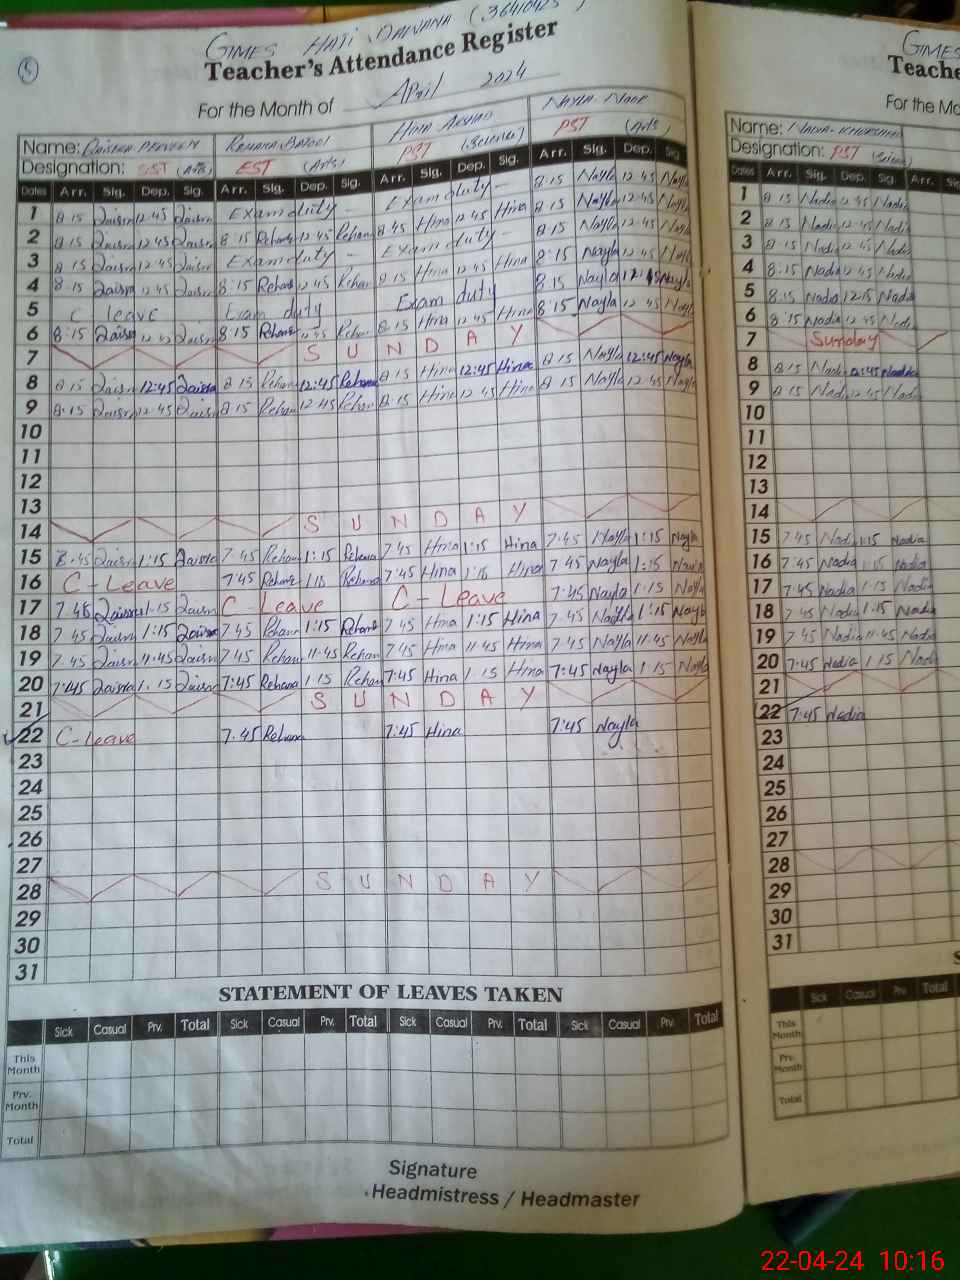 GMES HAJI DALVANA (36410425)
Teacher's Attendance Register
For the Month of April 2024
Name: Qaisra Perveen Rehana Batool Hina Arshad Nayla Noor
Designation: SST (Arts) EST (Arts) PST (Science) PST (Arts)
Dates Arr. Sig. Dep. Sig. Arr. Sig. Dep. Sig. Arr. Sig. Dep. Sig. Arr. Sig. Dep. Sig
1 8:15 Qaisra 12:45 Qaisra Exam duty - Exam duty - 8:15 Nayla 12:45 Nayla
2 8:15 Qaisra 12:45 Qaisra 8:15 Rehana 12:45 Rehana 8:45 Hina 12:45 Hina 8:15 Nayla 12:45 Nayla
3 8:15 Qaisra 12:45 Qaisra Exam duty - Exam duty - 8:15 Nayla 12:45 Nayla
4 8:15 Qaisra 12:45 Qaisra 8:15 Rehana 12:45 Rehana 8:15 Hina 12:45 Hina 8:15 Nayla 12:45 Nayla
5 C leave Exam duty Exam duty 8:15 Nayla 12:45 Nayla
6 8:15 Qaisra 12:45 Qaisra 8:15 Rehana 12:45 Rehana 8:15 Hina 12:45 Hina 8:15 Nayla 12:45 Nayla
7 SUNDAY
8 8:15 Qaisra 12:45 Qaisra 8:15 Rehana 12:45 Rehana 8:15 Hina 12:45 Hina 8:15 Nayla 12:45 Nayla
9 8:15 Qaisra 12:45 Qaisra 8:15 Rehana 12:45 Rehana 8:15 Hina 12:45 Hina 8:15 Nayla 12:45 Nayla
10
11
12
13
14 SUNDAY
15 8:45 Qaisra 1:15 Qaisra 7:45 Rehana 1:15 Rehana 7:45 Hina 1:15 Hina 7:45 Nayla 1:15 Nayla
16 C-Leave 7:45 Rehana 1:15 Rehana 7:45 Hina 1:15 Hina 7:45 Nayla 1:15 Nayla
17 7:45 Qaisra 1:15 Qaisra C-Leave C-Leave 7:45 Nayla 1:15 Nayla
18 7:45 Qaisra 1:15 Qaisra 7:45 Rehana 1:15 Rehana 7:45 Hina 1:15 Hina 7:45 Nayla 1:15 Nayla
19 7:45 Qaisra 11:45 Qaisra 7:45 Rehana 11:45 Rehana 7:45 Hina 11:45 Hina 7:45 Nayla 11:45 Nayla
20 7:45 Qaisra 1:15 Qaisra 7:45 Rehana 1:15 Rehana 7:45 Hina 1:15 Hina 7:45 Nayla 1:15 Nayla
21 SUNDAY
22 C-leave 7:45 Rehana 7:45 Hina 7:45 Nayla
23
24
25
26
27
28 SUNDAY
29
30
31
STATEMENT OF LEAVES TAKEN
Sick Casual Prv. Total Sick Casual Prv. Total Sick Casual Prv. Total Sick Casual Prv. Total
This Month
Prv. Month
Total
Signature
Headmistress / Headmaster
GMES
Teache
For the Mo
Name: Nadia Khurshid
Designation: PST (Science)
Dates Arr. Sig. Dep. Sig. Arr. Sig
1 8:15 Nadia 12:45 Nadia
2 8:15 Nadia 12:45 Nadia
3 8:15 Nadia 12:45 Nadia
4 8:15 Nadia 12:45 Nadia
5 8:15 Nadia 12:15 Nadia
6 8:15 Nadia 12:45 Nadia
7 Sunday
8 8:15 Nadia 12:45 Nadia
9 8:15 Nadia 12:45 Nadia
10
11
12
13
14
15 7:45 Nadia 1:15 Nadia
16 7:45 Nadia 1:15 Nadia
17 7:45 Nadia 1:15 Nadia
18 7:45 Nadia 1:15 Nadia
19 7:45 Nadia 11:45 Nadia
20 7:45 Nadia 1:15 Nadia
21
22 7:45 Nadia
23
24
25
26
27
28
29
30
31
S
Sick Casual Prv. Total Sick
This Month
Prv. Month
Total
22-04-24 10:16